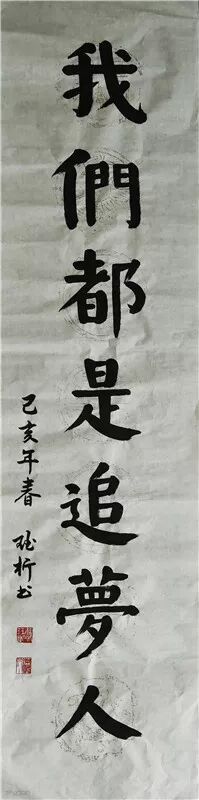 我們都是追夢人
己亥年春